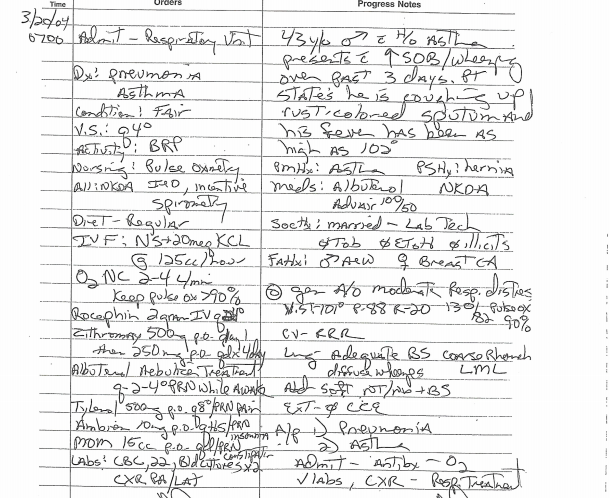 Time
Orders
Progress Notes
3/20/04
0700
Admit - Respiratory Unit
Dx: pneumonia
Asthma
Condition: Fair
V.S.: q4°
Activity: BRP
Nursing: Pulse Oximetry
All: NKDA I+O, incentive
spirometry
Diet - Regular
IVF: NS+20meq KCL
@ 125cc/hour
O2 NC 2-4 L/min
Keep pulse ox >90%
Rocephin 2gram IV
Zithromax 500mg p.o. day 1
then 250mg p.o. qd x 4 days
Albuterol Nebulizer Treatment
q-2-4° PRN while AWAKE
Tylenol 500mg p.o. q8°/PRN pain
Ambien 10mg p.o. qHS/PRN
insomnia
MOM 15cc p.o. qd/PRN
constipation
Labs: CBC, 22, Bld cultures x2
CXR PA/LAT
43 y/o ♂ c̄ H/o Asthma
presents c̄ ↑SOB/wheezing
over past 3 days. Pt
states he is coughing up
rust-colored sputum and
his fever has been as
high as 102°
PMHx: Asthma PSHx: hernia
Meds: Albuterol NKDA
Advair 100/50
SocHx: married - Lab Tech
Ø Tob Ø EtOH Ø illicits
FaHx: ♂ A+W ♀ Breast CA
gen A/O moderate Resp. distress
V.S. T-101° P-88 R-20 130/82 pulse ox 90%
CV - RRR
Lung Adequate BS coarse Rhonchi
diffuse wheezes LML
Abd soft NT/ND +BS
Ext - Ø CCE
A/P 1) Pneumonia
2) Asthma
Admit - Antibx - O2
√labs, CXR - Resp. Treatment